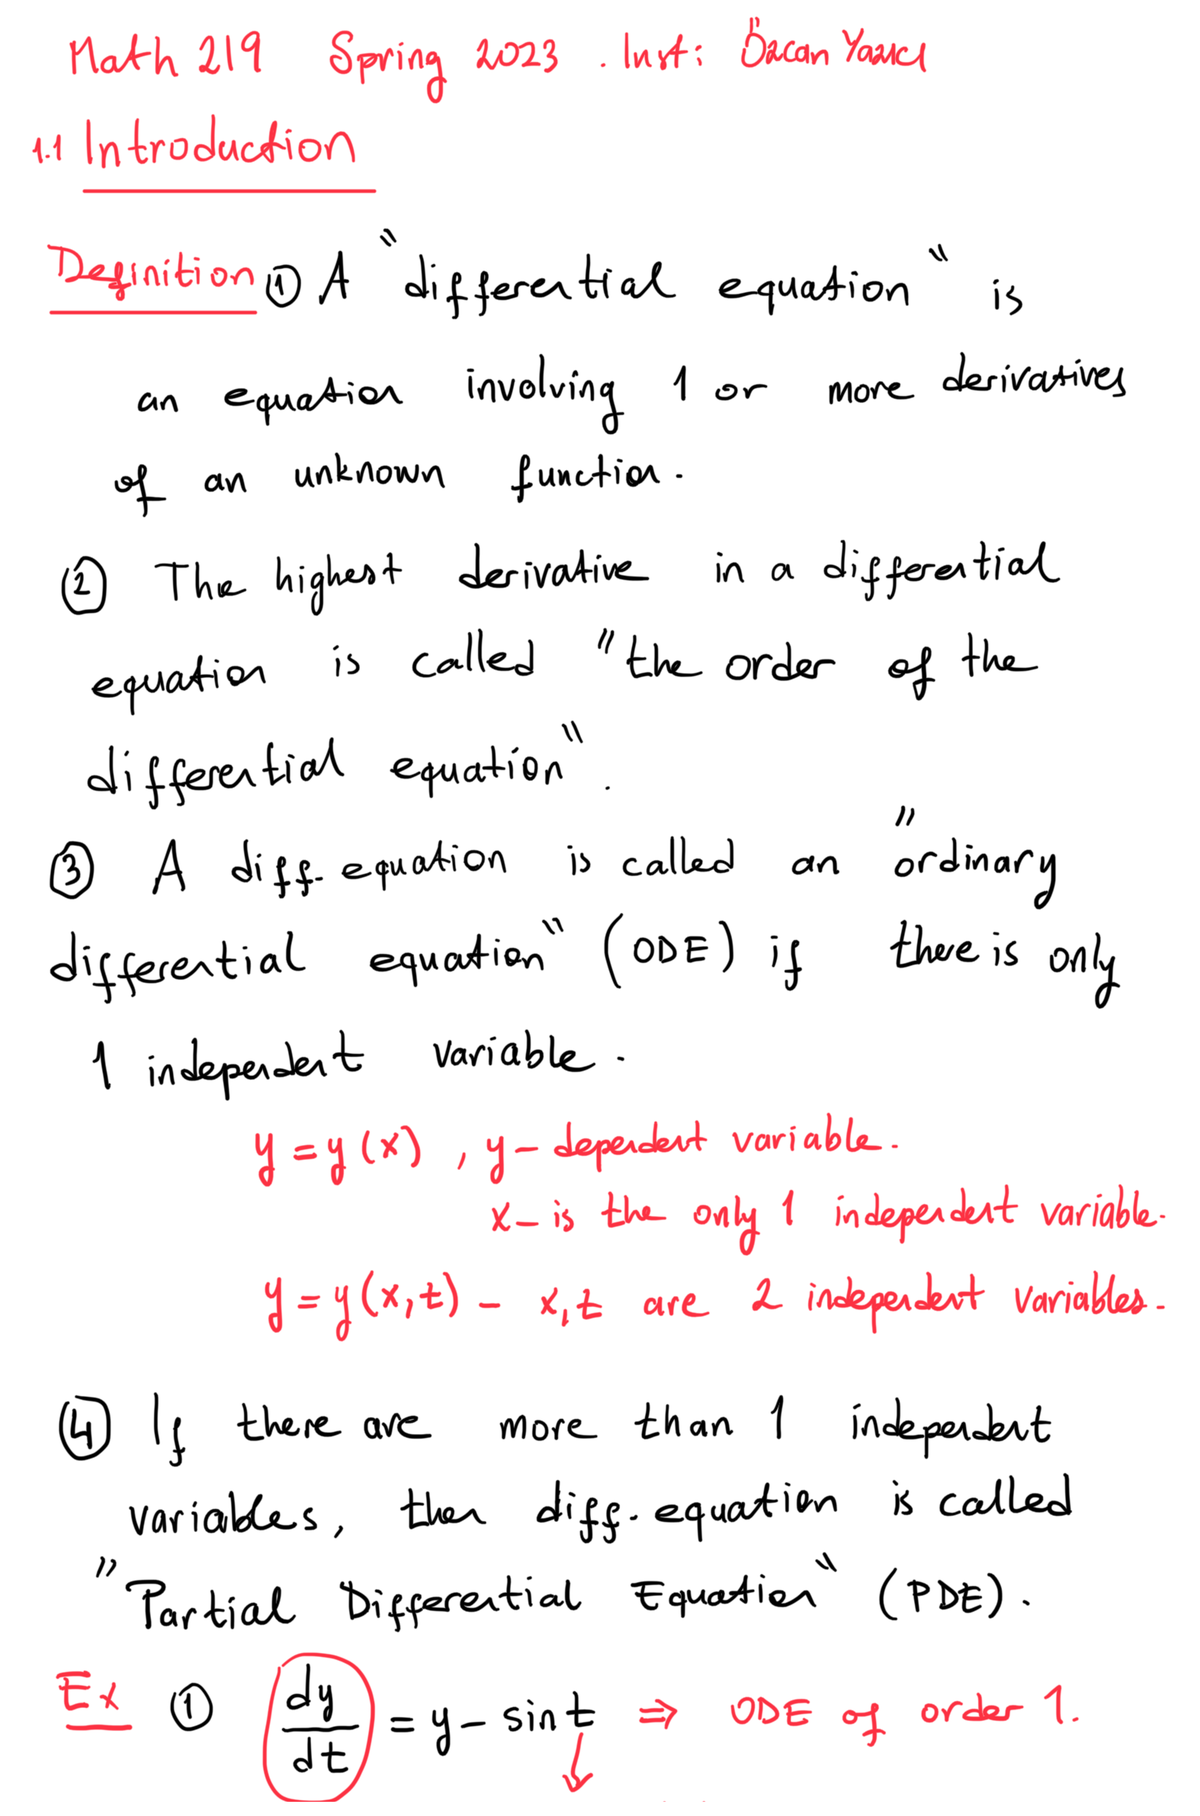 Math 219 Spring 2023 . Inst: Özcan Yazıcı
1.1 Introduction
Definition ① A "differential equation" is
an equation involving 1 or more derivatives
of an unknown function.
② The highest derivative in a differential
equation is called "the order of the
differential equation".
③ A diff. equation is called an "ordinary
differential equation" (ODE) if there is only
1 independent variable.
y = y(x) , y - dependent variable.
x - is the only 1 independent variable.
y = y(x,t) - x,t are 2 independent variables.
④ If there are more than 1 independent
variables, then diff. equation is called
"Partial Differential Equation" (PDE).
Ex ① dy/dt = y - sin t ⇒ ODE of order 1.